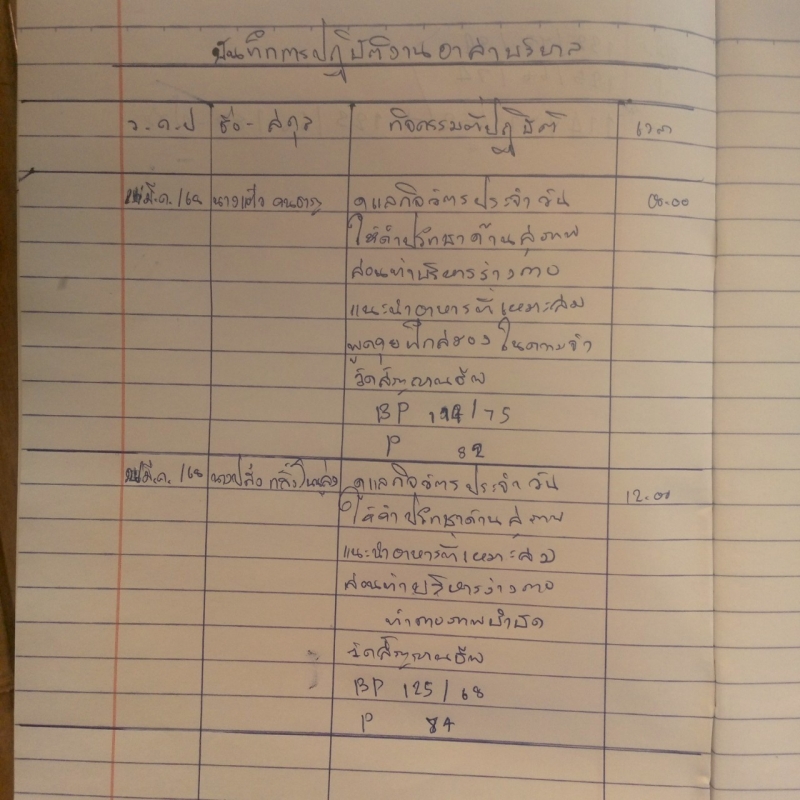 บันทึกการปฏิบัติงานอาสาบริบาล
ว.ด.ป ชื่อ - สกุล กิจกรรมที่ปฏิบัติ เวลา
มี.ค. /68 นางแก้ว ดูแลกิจวัตรประจำวัน 08.00
ให้คำปรึกษาด้านสุขภาพ
สอนท่าบริหารร่างกาย
แนะนำอาหารที่เหมาะสม
พูดคุยฝึกสมอง ในความจำ
วัดสัญญาณชีพ
BP 124/75
P 82
มี.ค. /68 ดูแลกิจวัตรประจำวัน 12.00
ให้คำปรึกษาด้านสุขภาพ
แนะนำอาหารที่เหมาะสม
สอนท่าบริหารร่างกาย
ทำกายภาพบำบัด
วัดสัญญาณชีพ
BP 125/68
P 84